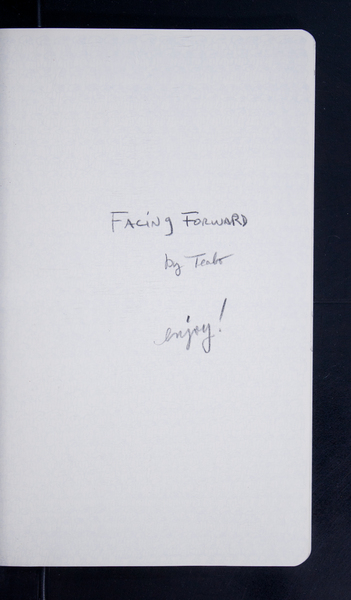 Facing Forward
by Teabo
enjoy!